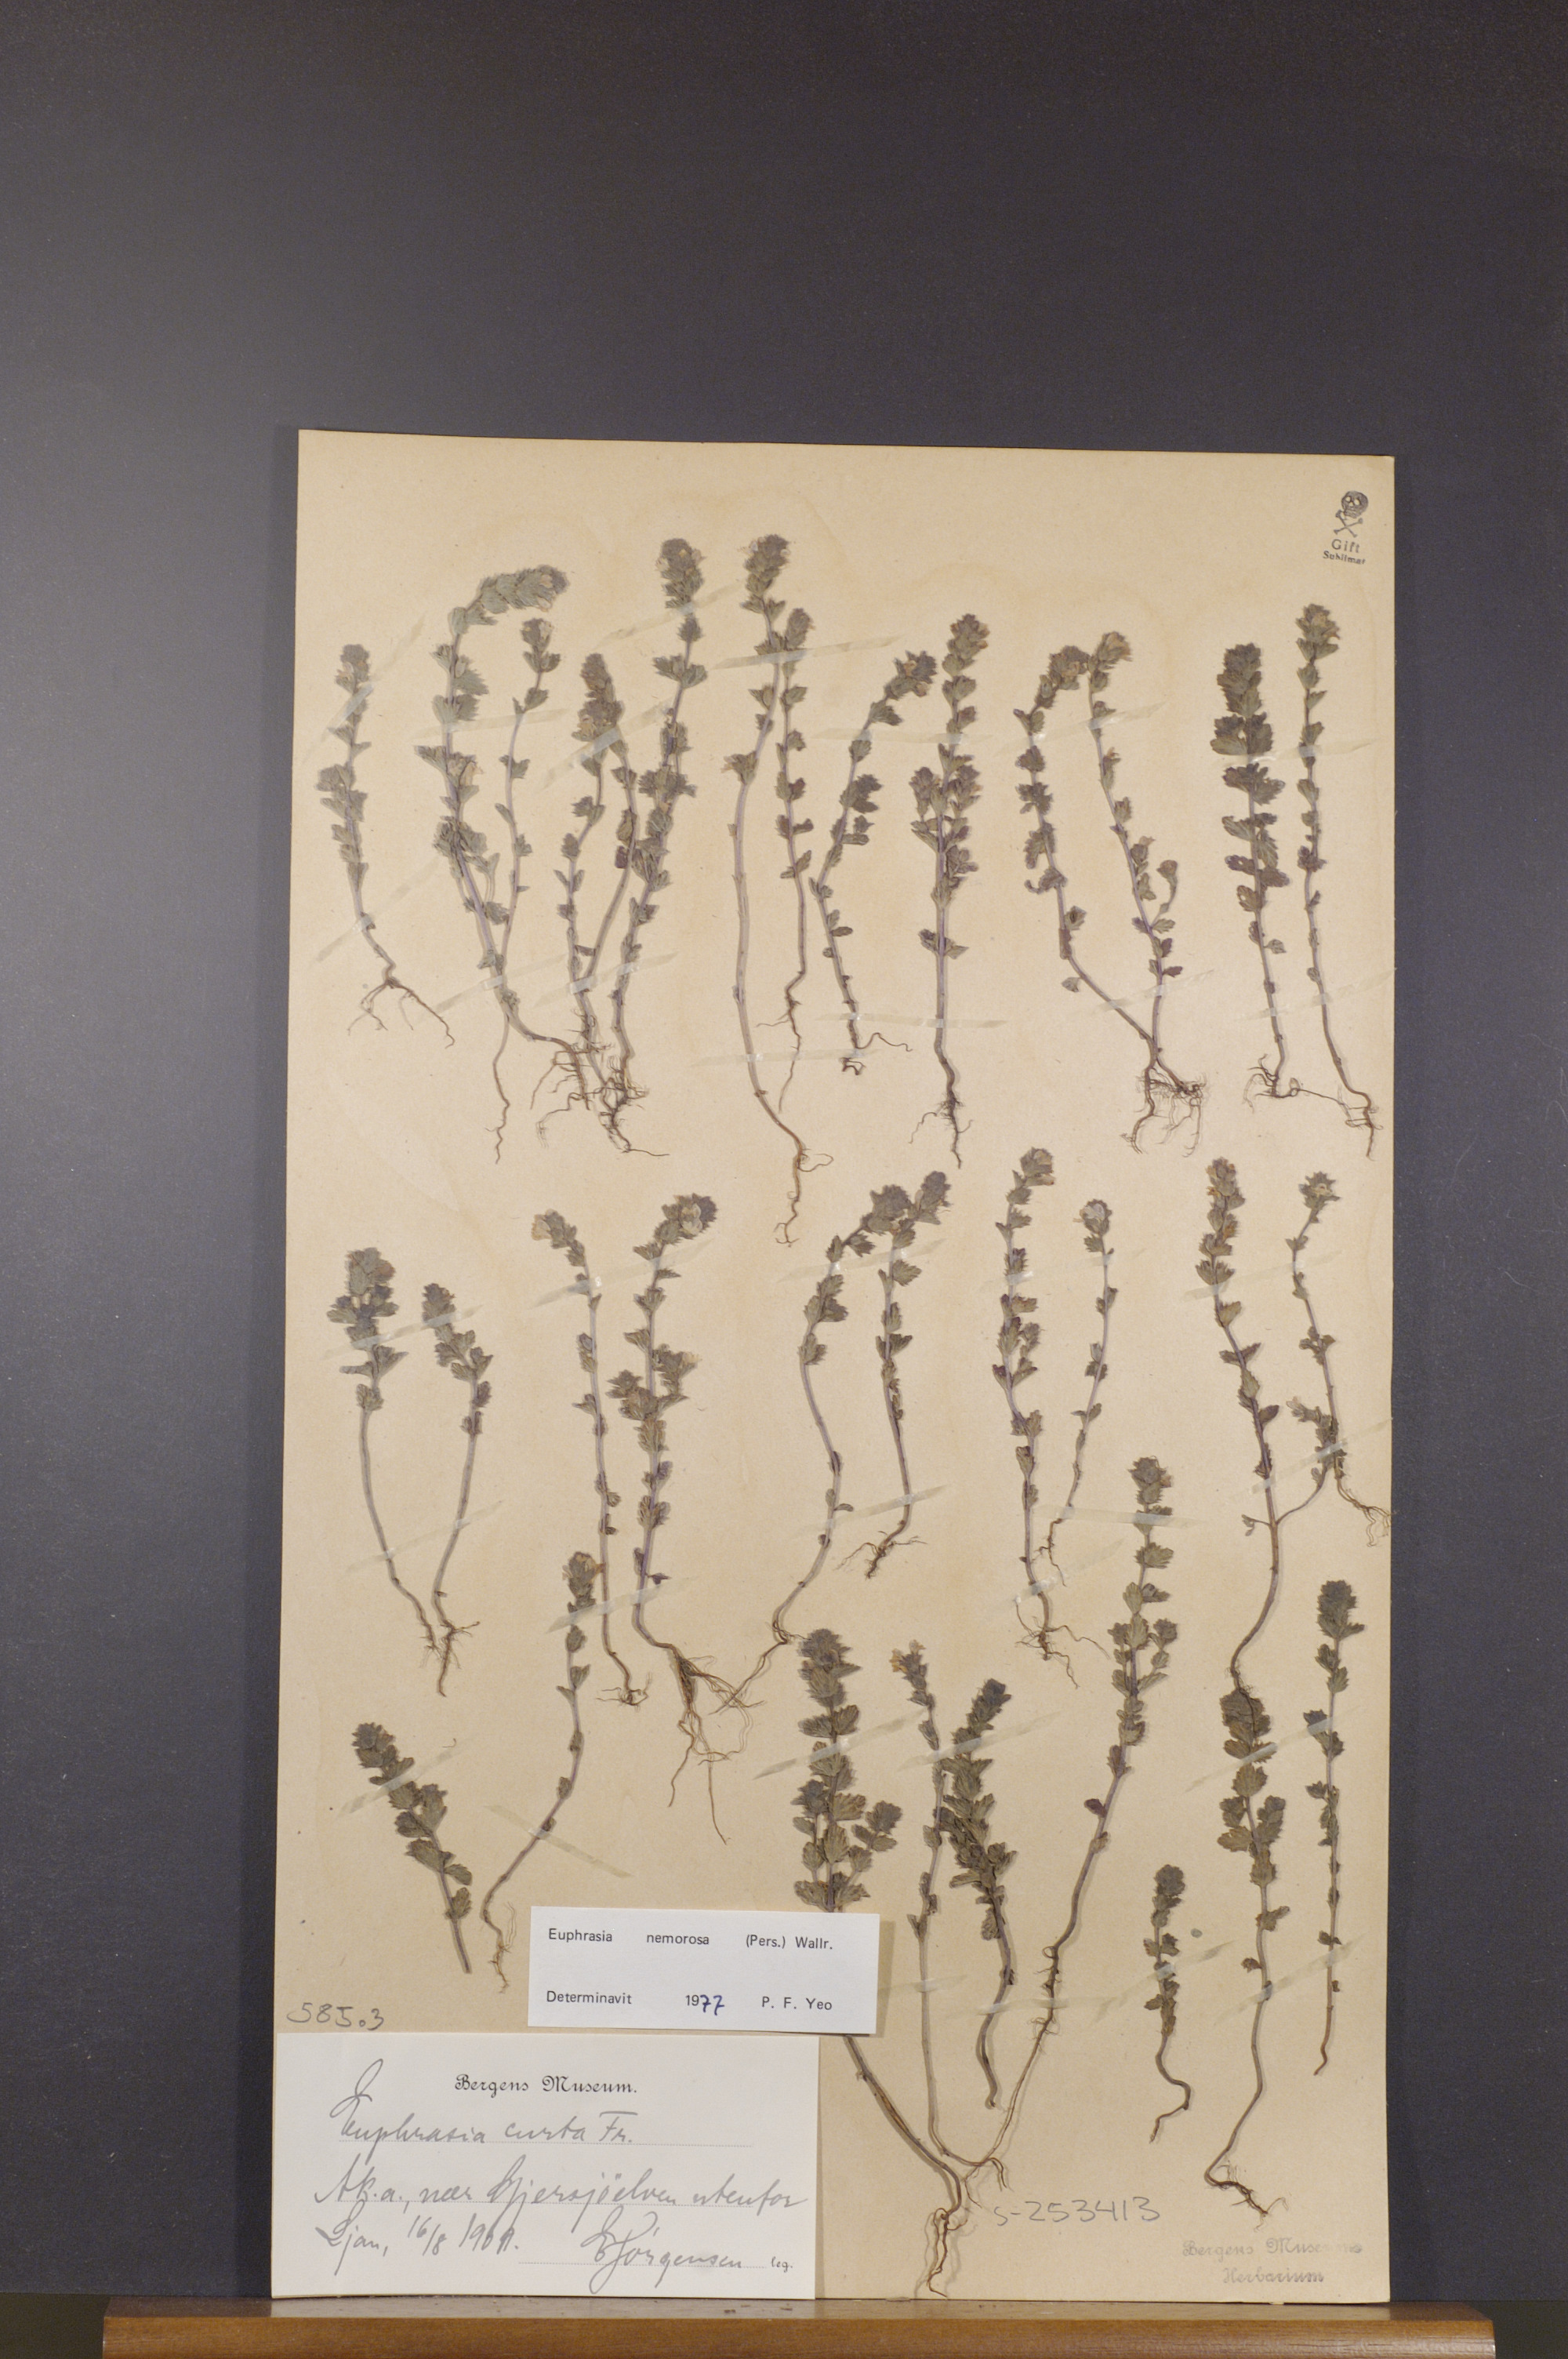 Gift
Sublimat
Euphrasia nemorosa (Pers.) Wallr.
Determinavit 1977 P. F. Yeo
585.3
Bergens Museum.
Euphrasia curta Fr.
Ak.a., nær Gjersjöelven utenfor
Ljan, 16/8 1909. EJörgensen leg.
S-253413
Bergens Museums
Herbarium